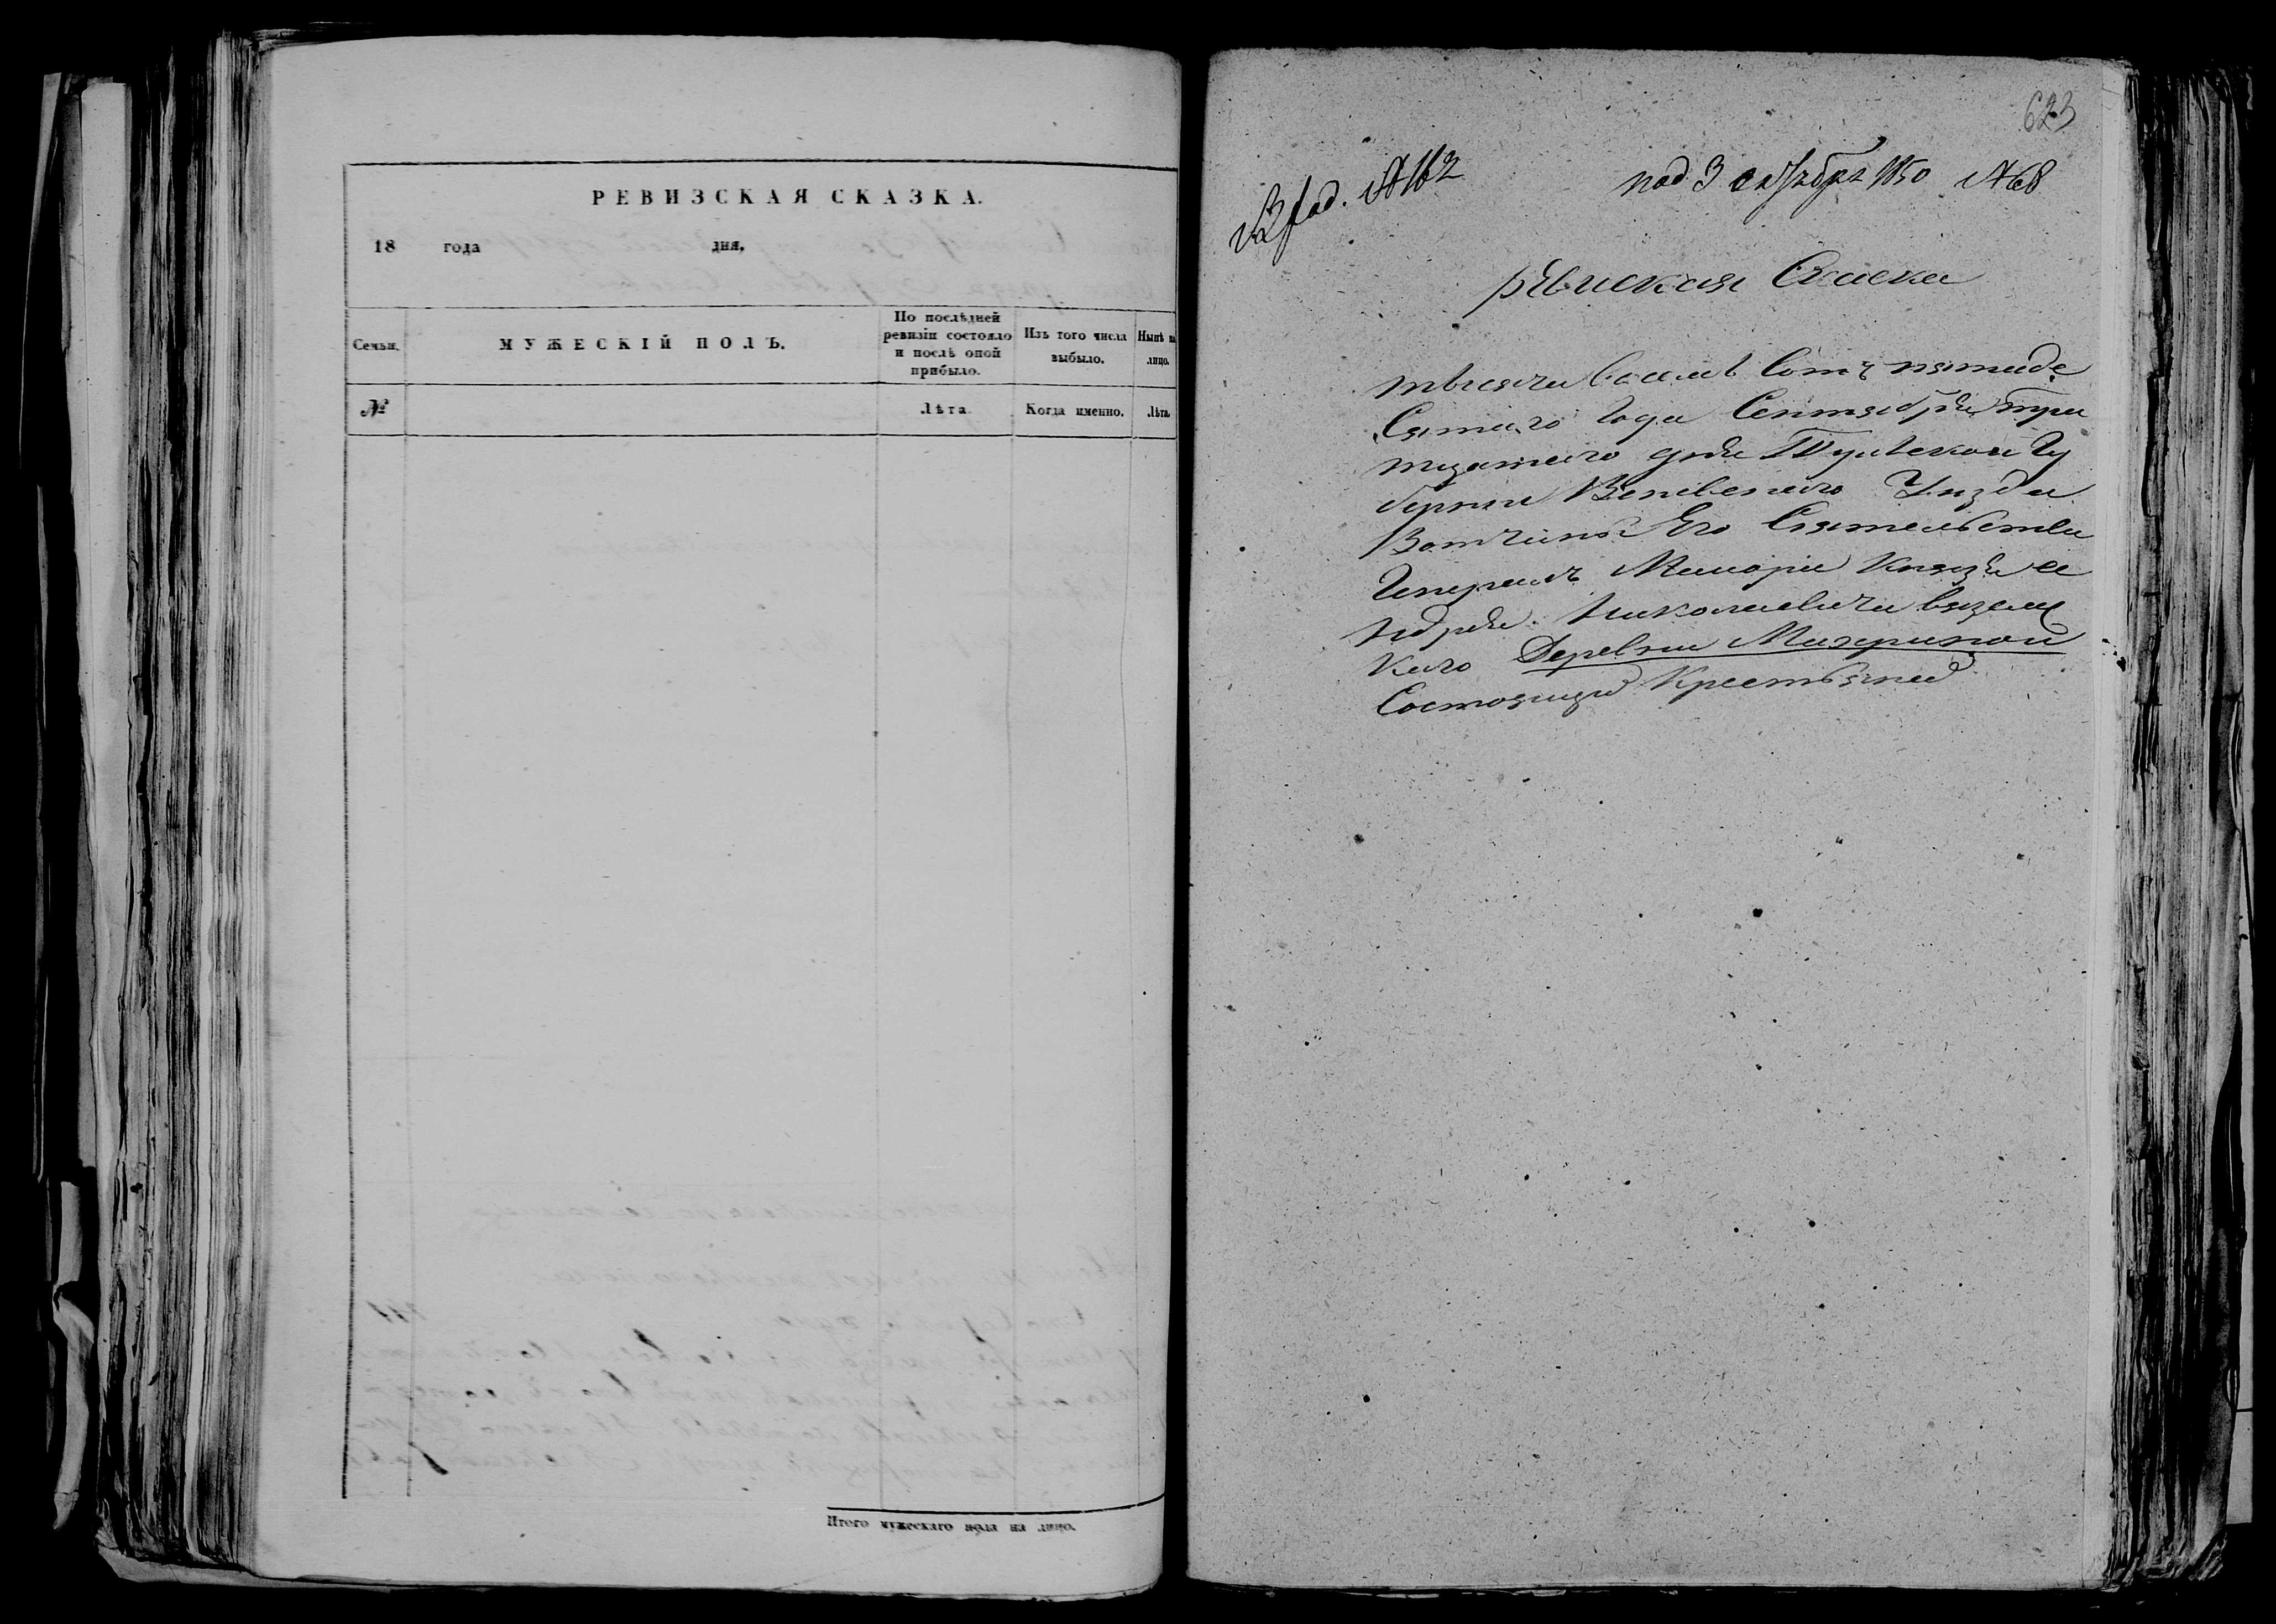 РЕВИЗСКАЯ СКАЗКА.
18 года дня,
Семьи.
МУЖЕСКІЙ ПОЛЪ.
По послѣдней
ревизіи состояло
и послѣ оной
прибыло.
Изъ того числа
выбыло.
Нынѣ на
лицо.
№
Лѣта.
Когда именно.
Лѣта.
Итого мужескаго пола на лицо.
623
№ 162
под 3 октября 1850 № 68
Ревиская Скаска
тысячи восемь сотъ пятиде
сятаго года Сентября три
тцатаго дня Тульской Гу
бернии Веневскаго Уизда
Вотчины Его Сиятельства
Генералъ Маиора Князя а
ндрея Николаевича вяземс
каго Деревни Мизериной
Состоящих Крестьянех